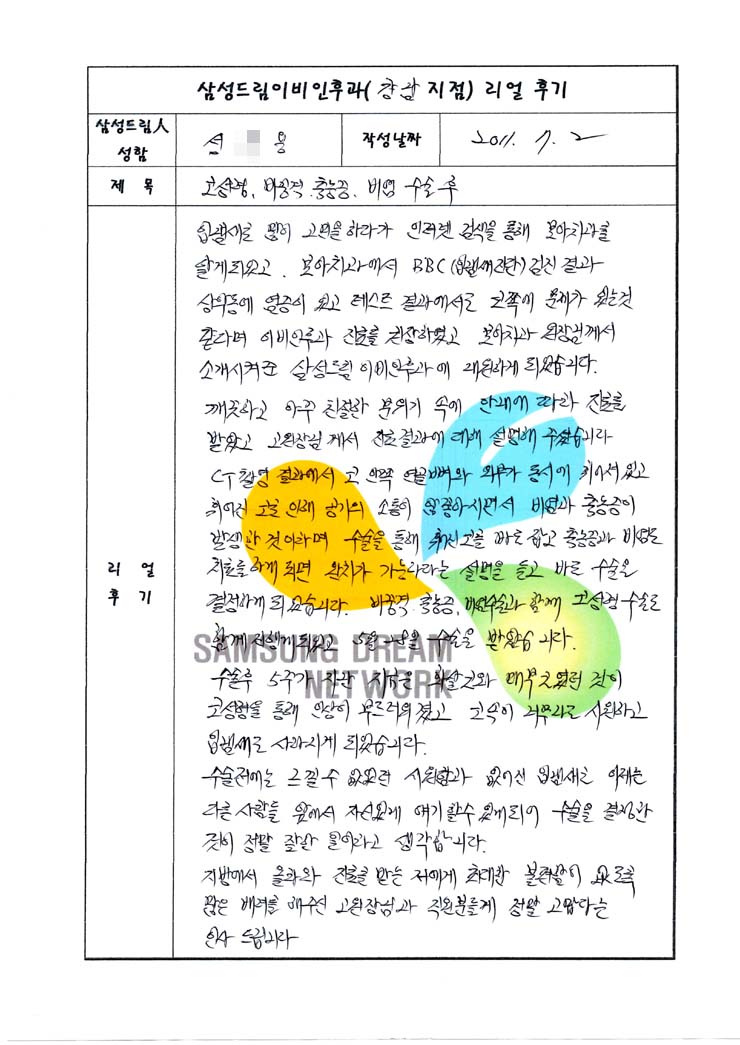 삼성드림이비인후과(강남 지점) 리얼 후기
삼성드림人 성함
석 용
작성날짜
2011. 7. 2
제 목
코성형, 비중격. 축농증. 비염 수술 후
리 얼 후 기
입냄새로 많이 고민을 하다가 인터넷 검색을 통해 보아치과를
알게되었고. 보아치과에서 BBC(입냄새진단)검진 결과
상악동에 염증이 있고 테스트 결과에서도 코쪽에 문제가 있는것
같다며 이비인후과 진료를 권장하였고 보아치과 원장님께서
소개시켜준 삼성드림 이비인후과에 내원하게 되었습니다.
깨끗하고 아주 친절한 분위기 속에 안내에 따라 진료를
받았고 고원장님께서 진료결과에 대해 설명해 주셨습니다
CT촬영 결과에서 코 안쪽 연골뼈와 외부가 동시에 휘어져있고
휘어진 코로 인해 공기의 소통이 않좋아지면서 비염과 축농증이
발생한 것이라며 수술을 통해 휘어진 코를 바로 잡고 축농증과 비염도
치료를하게 되면 완치가 가능하다라는 설명을 듣고 바로 수술을
결정하게 되었습니다. 비중격. 축농증, 비염수술과 함께 코성형 수술도
함께 진행하게되었고 5월 수술을 받았습니다.
SAMSUNG DREAM
NETWORK
수술후 5주가 지난 지금은 화살코와 매부리였던 것이
코성형을 통해 인상이 부드러워졌고 코속이 너무나도 시원하고
입냄새도 사라지게 되었습니다.
수술전에는 느낄 수 없었던 시원함과 없어진 입냄새로 이제는
다른 사람들 앞에서 자신있게 얘기할수 있게되어 수술을 결정한
것이 정말 잘한 일이라고 생각합니다.
지방에서 올라와 진료를 받는 저에게 최대한 불편함이 없도록
많은 배려를 해주신 고원장님과 직원분들께 정말 고맙다는
인사 드립니다